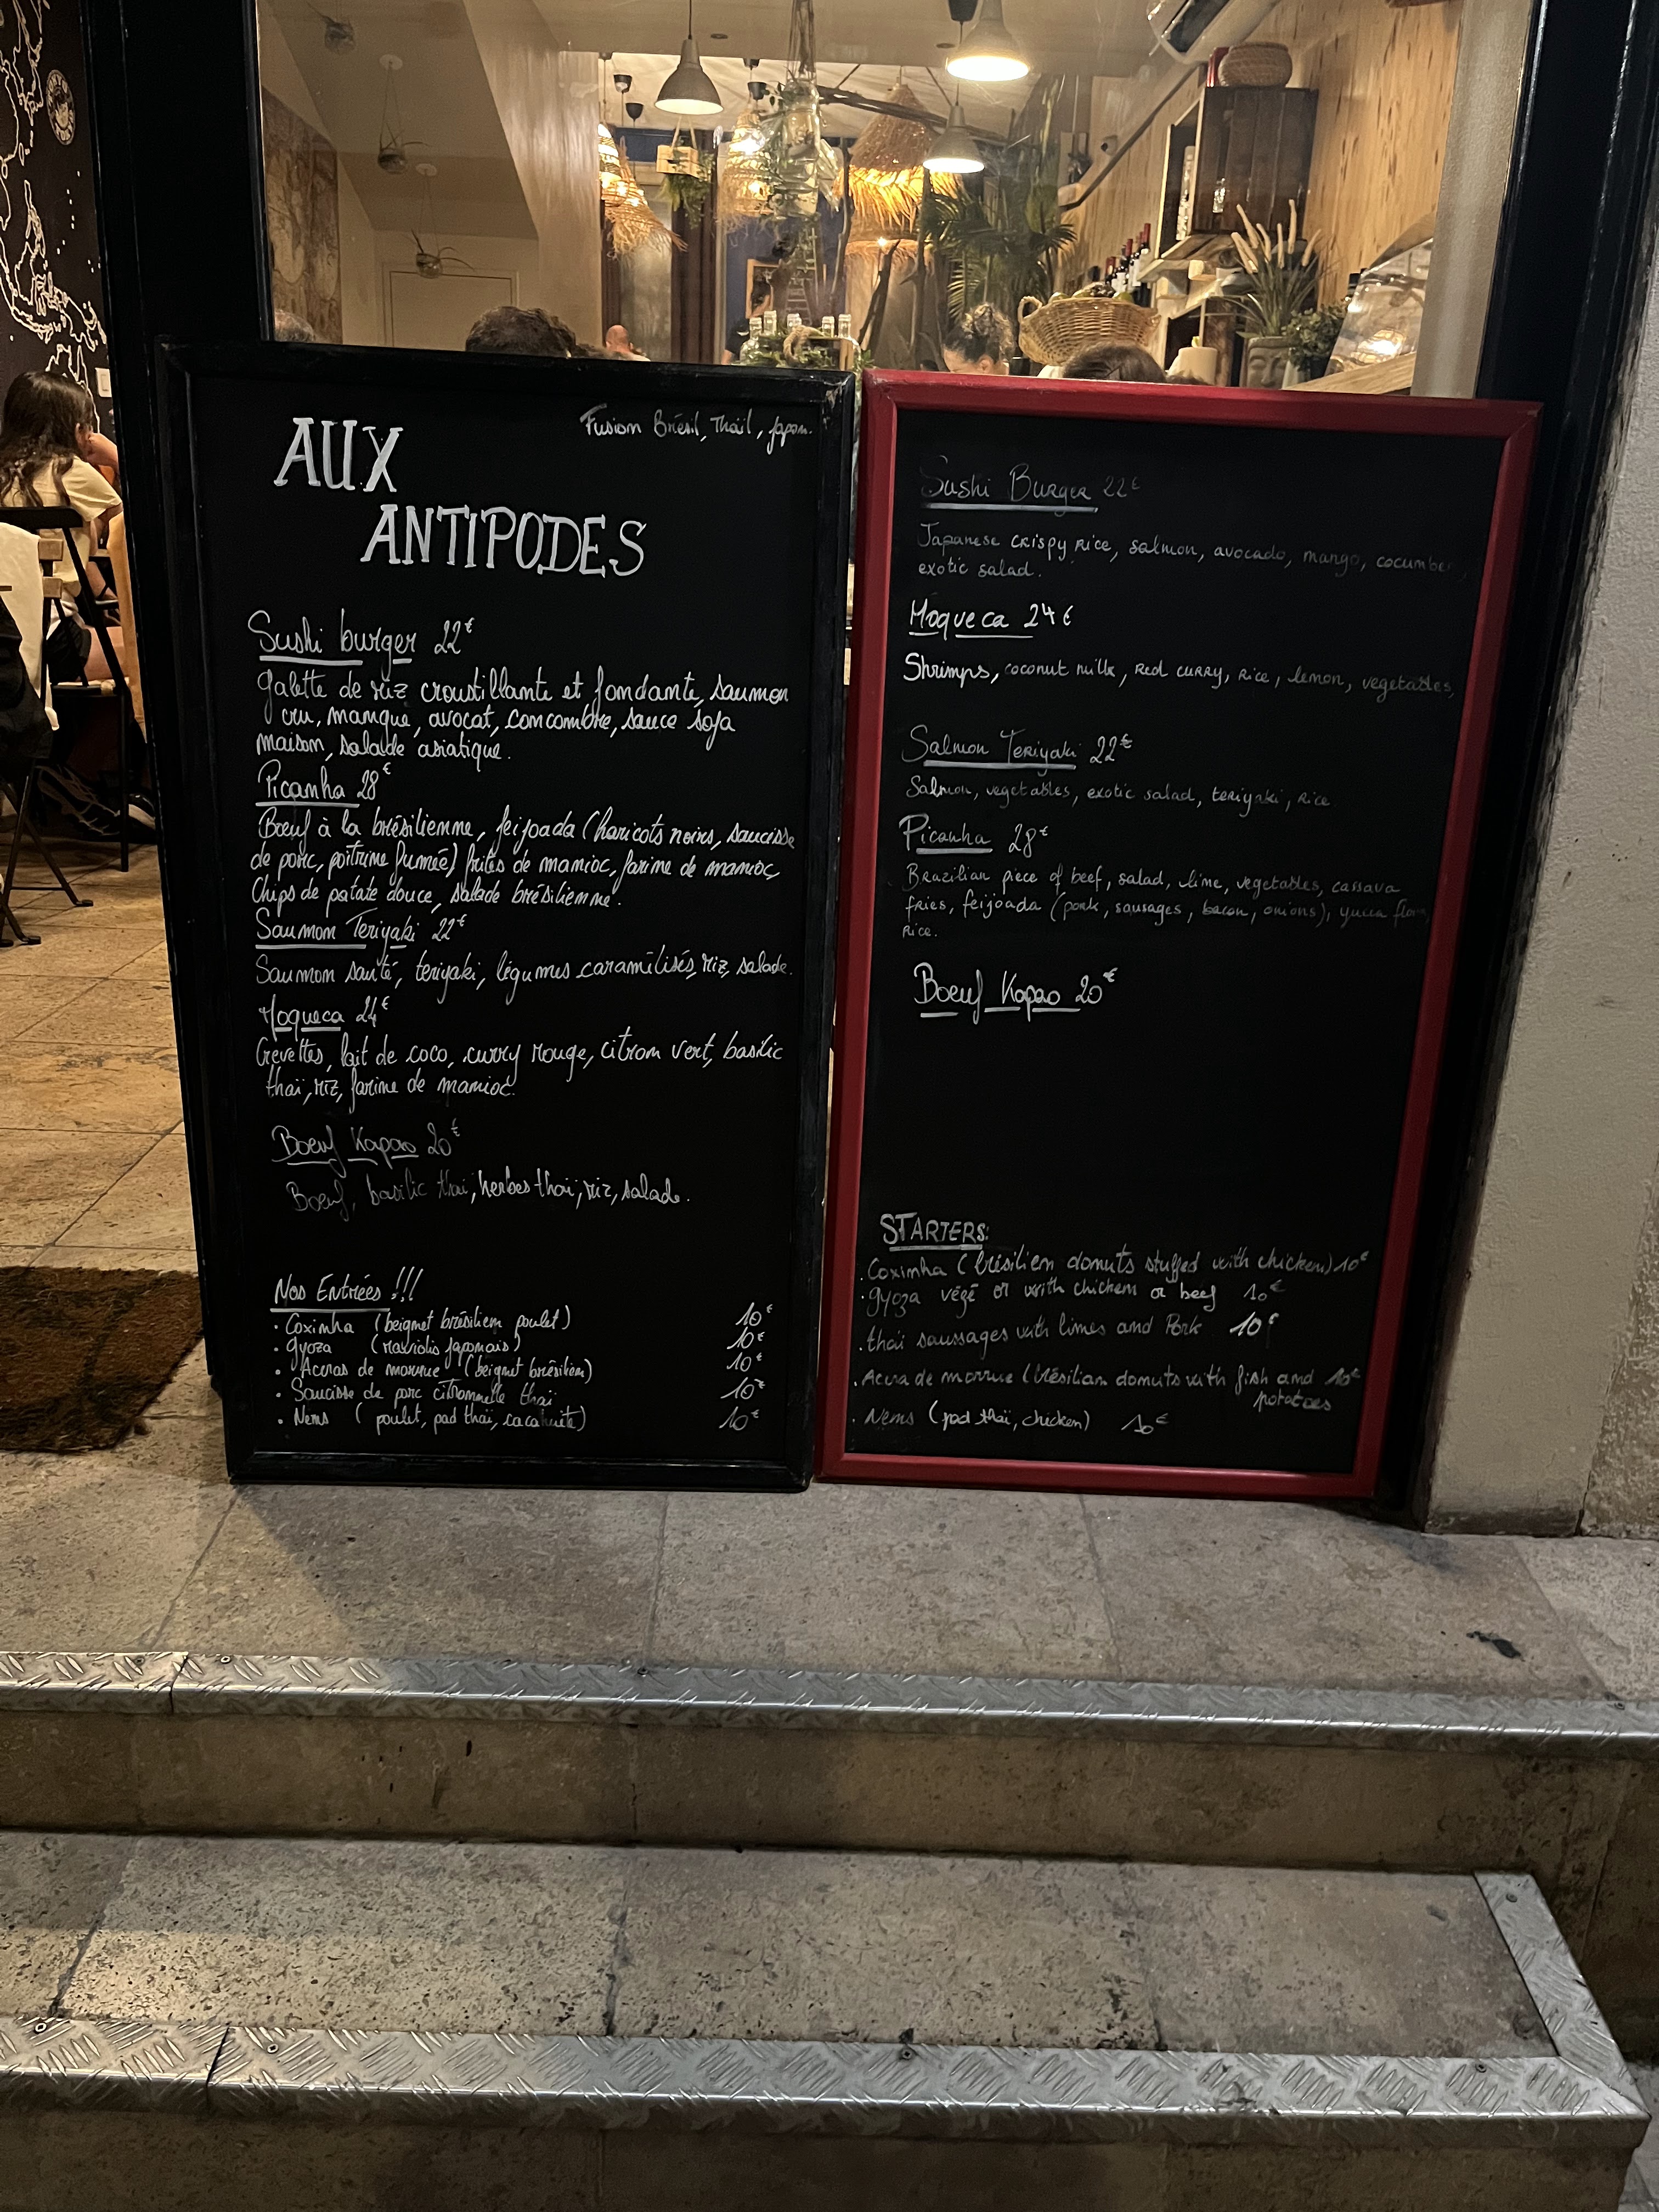 AUX
ANTIPODES
Fusion Brésil, Thaïl, Japon.
Sushi burger 22€
Galette de riz croustillante et fondante, saumon
cru, mangue, avocat, concombre, sauce soja
maison, salade asiatique.
Picanha 28€
Bœuf à la brésilienne, feijoada (haricots noirs, saucisse
de porc, poitrine fumée) frites de manioc, farine de manioc,
Chips de patate douce, salade brésilienne.
Saumon Teriyaki 22€
Saumon sauté, teriyaki, légumes caramélisés, riz, salade.
Moqueca 24€
Crevettes, lait de coco, curry rouge, citron vert, basilic
thaï, riz, farine de manioc.
Boeuf Kapao 20€
Boeuf, basilic thaï, herbes thaï, riz, salade.
Nos Entrées !!!
• Coxinha (beignet brésilien poulet) 10€
• gyoza (raviolis japonais) 10€
• Accras de morrue (beignet brésilien) 10€
• Saucisse de porc citronnelle thaï 10€
• Nems ( poulet, pad thaï, cacahuète) 10€
Sushi Burger 22€
Japanese crispy rice, salmon, avocado, mango, cocumber,
exotic salad.
Moqueca 24€
Shrimps, coconut milk, red curry, rice, lemon, vegetables,
Salmon Teriyaki 22€
Salmon, vegetables, exotic salad, teriyaki, rice
Picanha 28€
Brazilian piece of beef, salad, lime, vegetables, cassava
fries, feijoada (pork, sausages, bacon, onions), yucca
Rice.
Boeuf Kapao 20€
STARTERS:
. Coxinha (brésilien donuts stuffed with chicken) 10€
• gyoza végé or with chicken or beef 10€
. thaï saussages with limes and Pork 10€
. Acera de morrue (brésilian donuts with fish and 10€
potatoes
. Nems (pad thaï, chicken) 10€